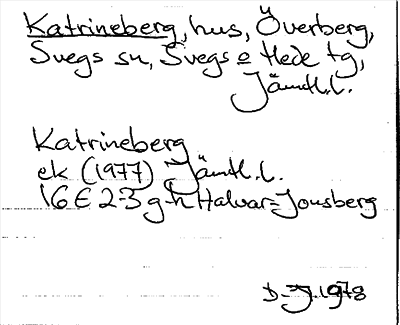 Katrineberg, hus, Överberg,
Svegs sn, Svegs o Hede tg,
Jämtl.l.
Katrineberg
ek (1977) Jämtl.l.
16 E 2-3 g-h Halvar=Jonsberg
1978